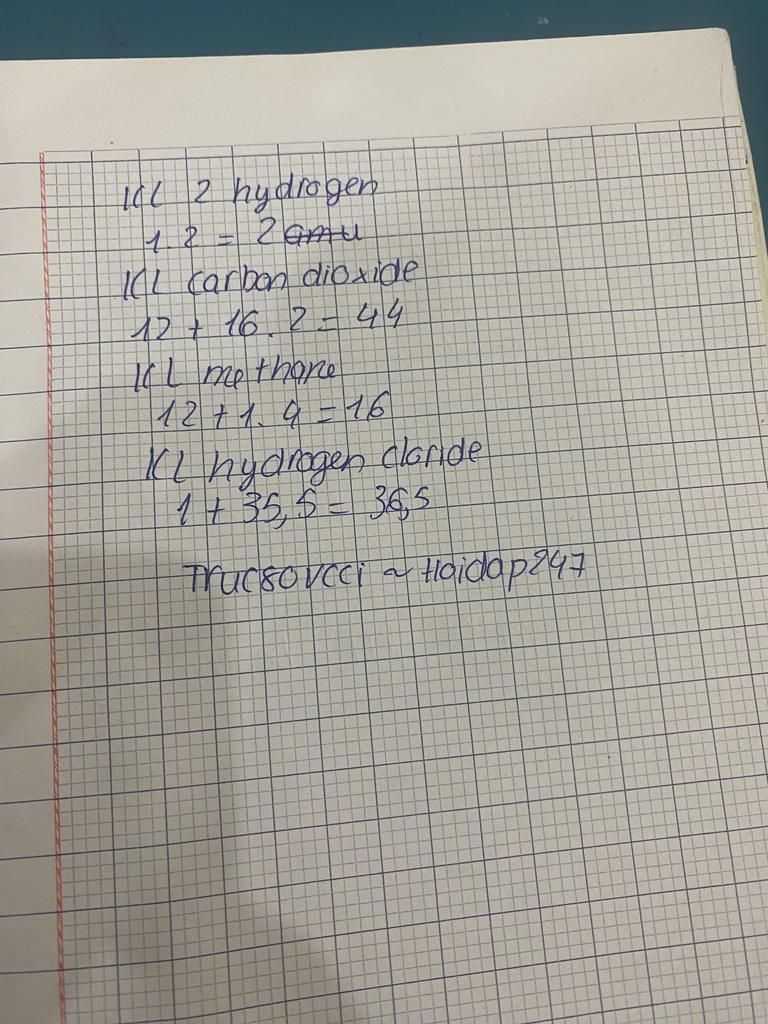 KL 2 hydrogen
1.2 = 2 amu
KL carbon dioxide
12 + 16.2 = 44
KL methane
12 + 1.4 = 16
KL hydrogen cloride
1 + 35,5 = 36,5
Trucsovcci ~ Hoidap247